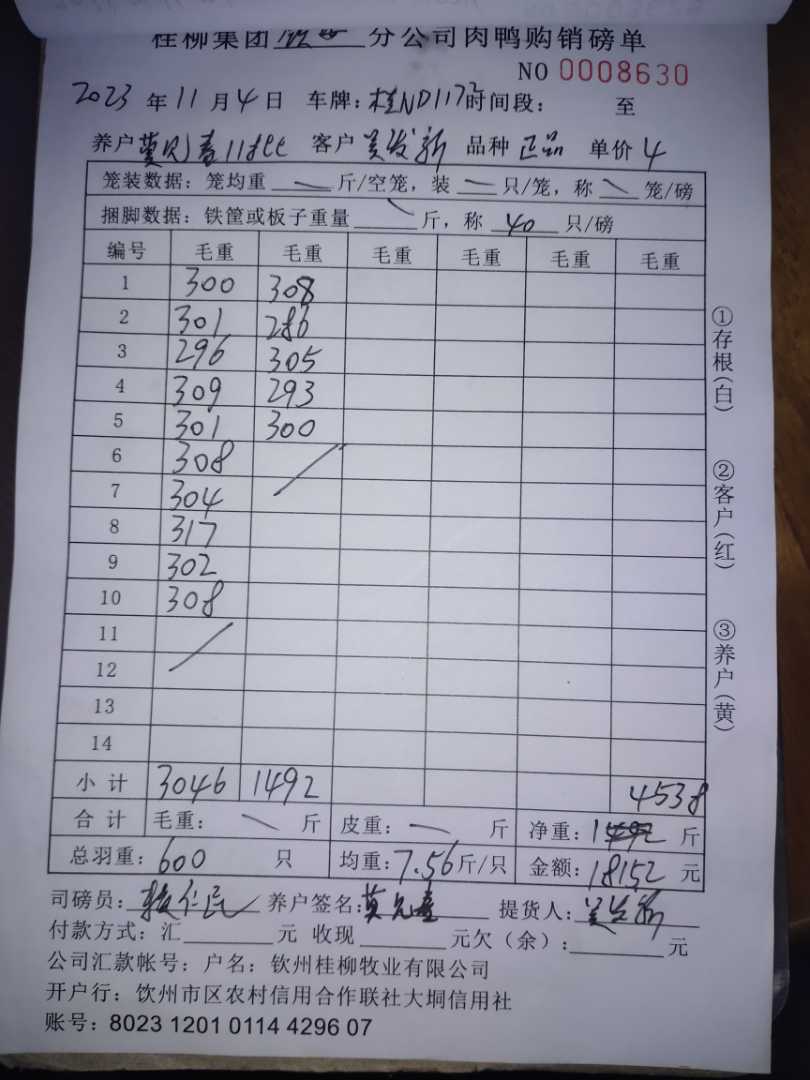 桂柳集团 钦州 分公司肉鸭购销磅单
NO 0008630
2023 年 11 月 4 日 车牌：桂ND1172 时间段： 至
养户 莫 客户 吴发新 品种 正品 单价 4
笼装数据：笼均重 斤/空笼，装 只/笼，称 笼/磅
捆脚数据：铁筐或板子重量 斤，称 40 只/磅
编号 毛重 毛重 毛重 毛重 毛重 毛重
1 300 308
2 301 286
3 296 305
4 309 293
5 301 300
6 308
7 304
8 317
9 302
10 308
11
12
13
14
小 计 3046 1492 4538
合 计 毛重： 斤 皮重： 斤 净重： 斤
总羽重：600 只 均重：7.56 斤/只 金额：18152 元
司磅员： 养户签名：莫 提货人：吴发新
付款方式：汇 元 收现 元欠（余）： 元
公司汇款帐号：户名：钦州桂柳牧业有限公司
开户行：饮州市区农村信用合作联社大垌信用社
账号：8023 1201 0114 4296 07
①存根（白）
②客户（红）
③养户（黄）